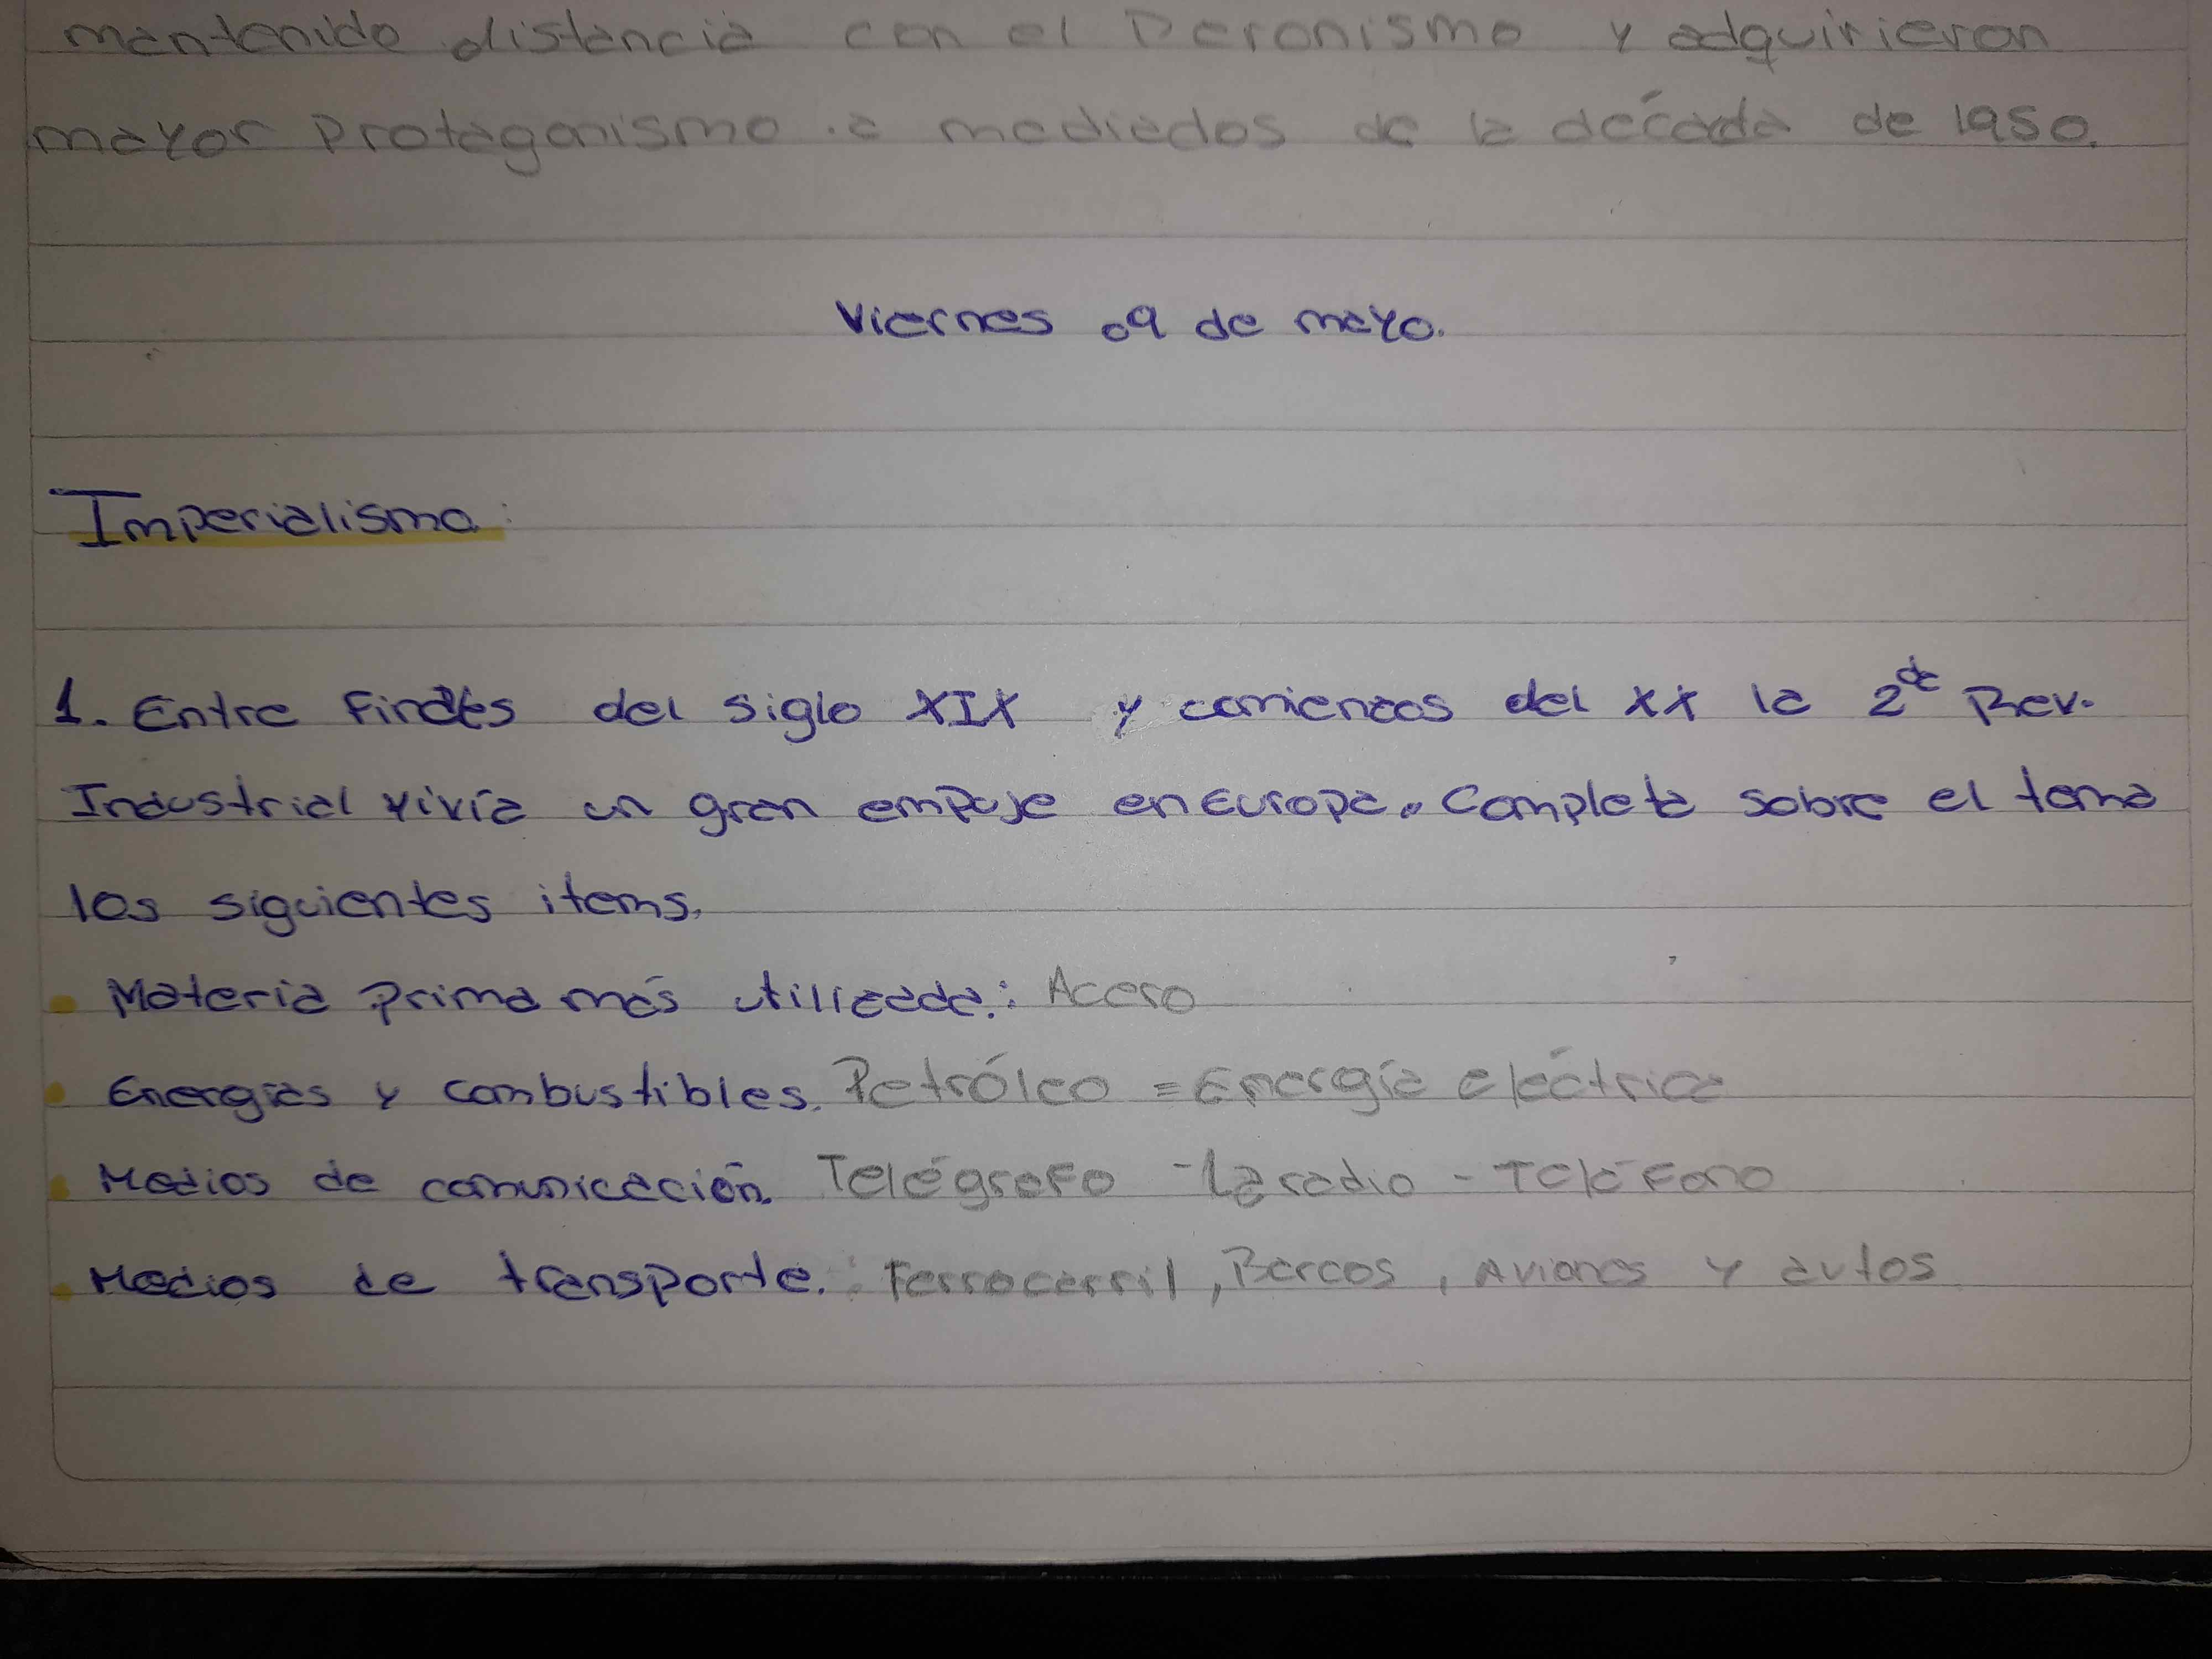 mantenido distancia con el Peronismo y adquirieron
mayor Protagonismo a mediados de la década de 1950.
Viernes 09 de mayo.
Imperialismo:
1. Entre fines del siglo XIX y comienzos del XX la 2da Rev.
Industrial vivía un gran empuje en Europa. Completa sobre el tema
los siguientes items.
• Materia prima más utilizada.: Acero
• Energías y combustibles. Petróleo = Energía eléctrica
• Medios de comunicación. Telégrafo - La radio - Teléfono
• Medios de transporte. : Ferrocarril, Barcos, Aviones y autos